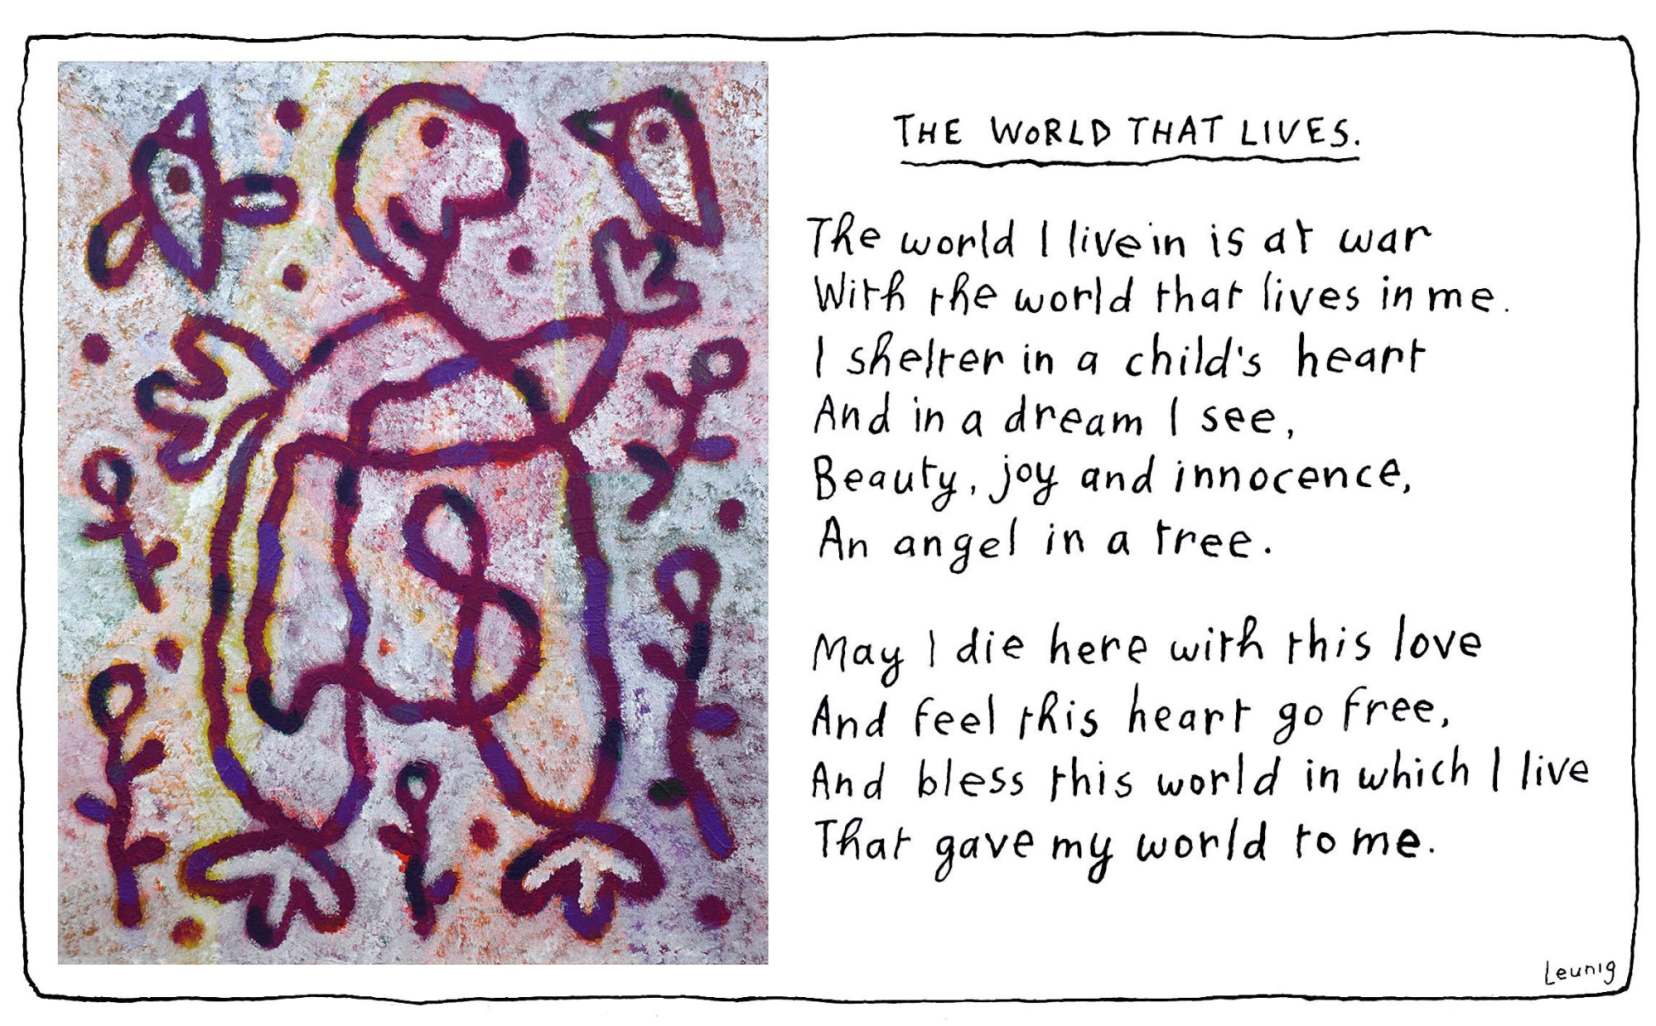 THE WORLD THAT LIVES.
The world I live in is at war
With the world that lives in me.
I shelter in a child's heart
And in a dream I see,
Beauty, joy and innocence,
An angel in a tree.
May I die here with this love
And feel this heart go free,
And bless this world in which I live
That gave my world to me.
Leunig